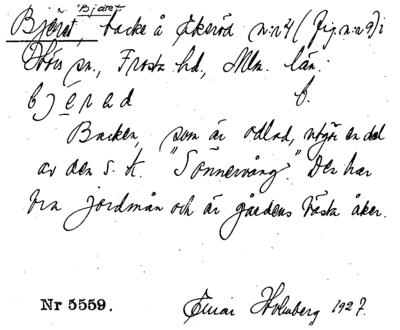 Bjäret
Bjeret, backe å Åkeröd n:r 4 (fig. n:r 9) i
Höörs sn., Frosta hd, Mlm. län.
bjerad f.
Backen, som är odlad, utgör en del
av den s. k. "Sönnervång". Der har
bra jordmån och är gårdens bästa åker.
Nr 5559. Einar Holmberg 1927.